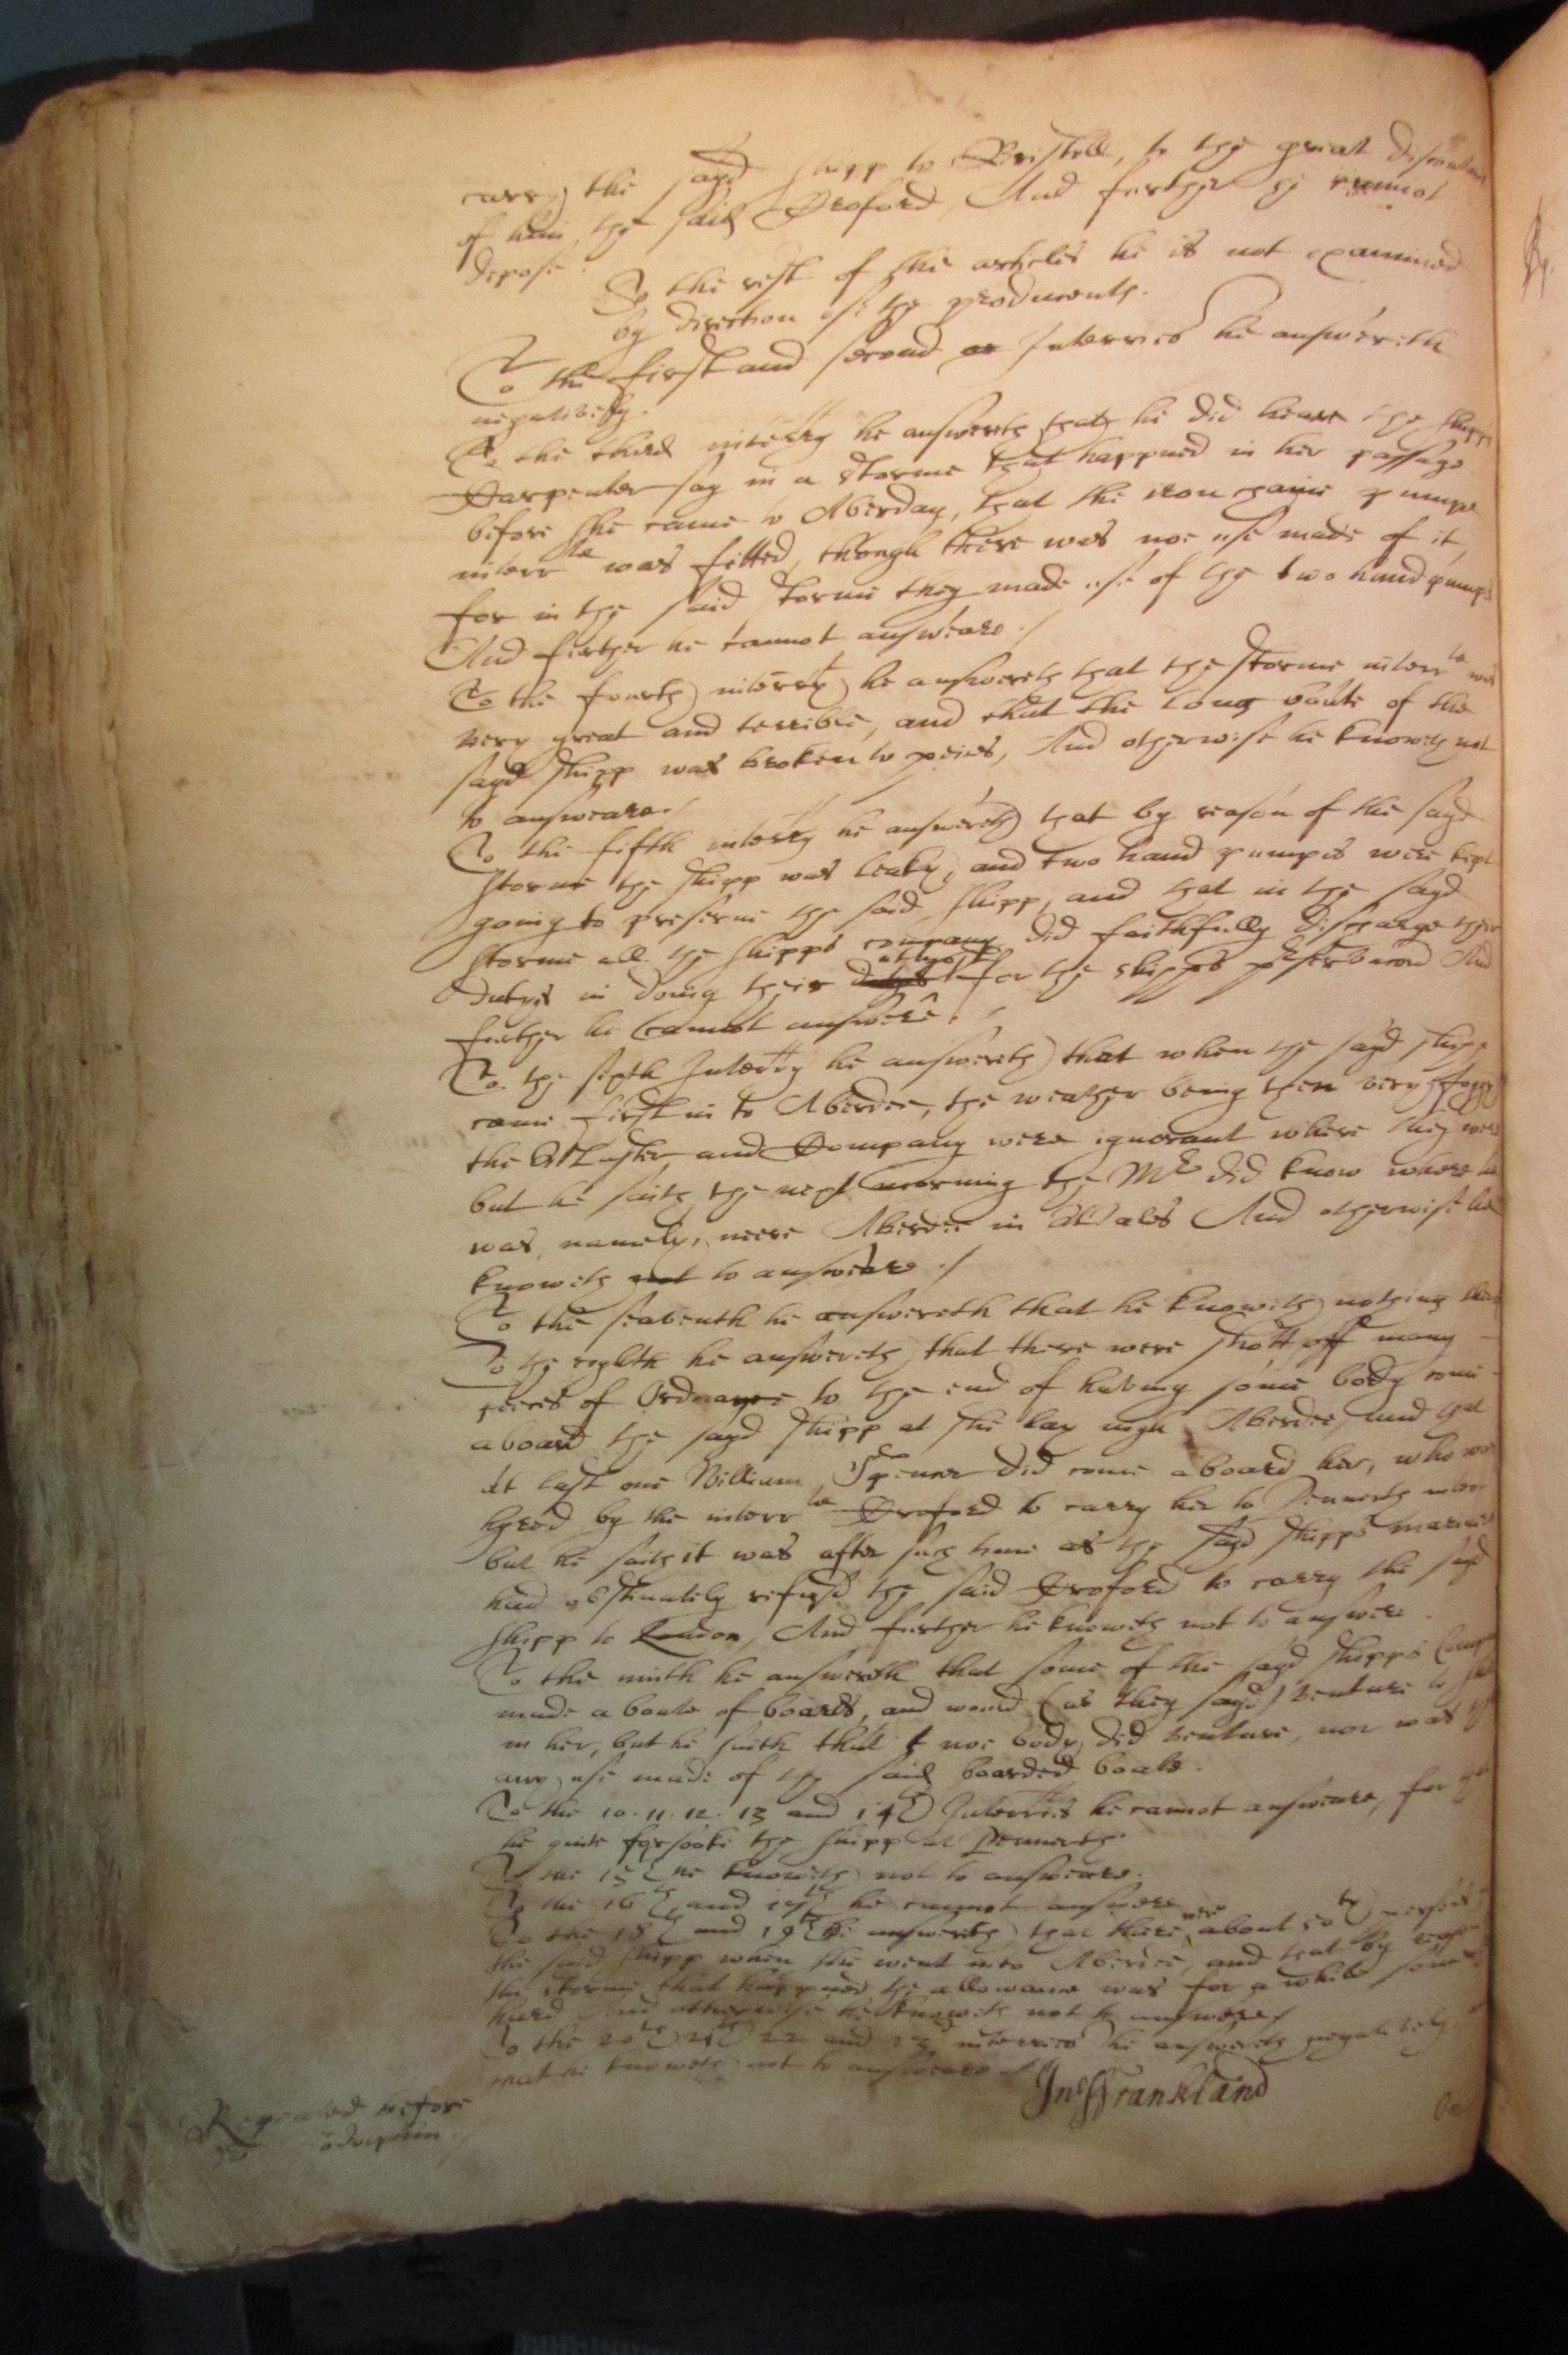 carry the sayd shipp to Bristoll, to the great
of him the said Croford, And further he cannot
depose.
To the rest of the articles he is not examined
by direction of the producents.
To the first and second Interries he answereth
negatively.
To the third interry he answereth that he did heare the shipps
Carpenter say in a storme that happned in her passage
before she came to Aberday, that the iron chaine pumpe
interrte was fitted, though there was noe use made of it,
for in the said storme they made use of the two hand pumps
And further he cannot answeare./
To the fourth interry he answereth that the storme interrte was
very great and terrible, and that the long boate of the
sayd shipp was broken to peices, And otherwise he knoweth not
to answeare./
To the fifth interry he answereth that by reason of the sayd
storme the shipp was leaky, and two hand pumpes were kept
going to preserve the said shipp, and that in the sayd
storme all the shipps company did faithfully discharge their
dutyes in doing their utmost for the shipps And
further he cannot answere./
To the sixth Interry he answereth that when the sayd shipp
came first in to Aberdee, the weather being then very foggy
the Master and Company were ignorant where they were
but he saith the next morning the Mr did know where he
was, namely, neere Aberdee in Wales And otherwise he
knoweth not to answeare./
To the seaventh he answereth that he knoweth nothing
To the eighth he answereth that there were shott off many
peeces of Ordnance to the end of having some body come
aboard the sayd shipp at the bay nigh Aberdee, and that
At last one William Spencer did come aboard her, who was
hyred by the interrte Croford to carry her to Pennerth
but he saith it was after such time as the sayd shipps
had obstinately refused the said Croford to carry the sayd
shipp to London, And further he knoweth not to answere.
To the ninth he answereth that some of the sayd shipps
made a boate of boards, and would (as they sayd) venture to
in her, but he saith that noe body did venture, nor was
any use made of the said boarded boate.
To the 10. 11. 12. 13 and 14th Interries he cannot answeare, for
he quite forsooke the shipp at Pennerth.
To the 15th he knoweth not to answeare.
To the 16th and 17th he cannot answere
To the 18th and 19th he answereth that there were about 50ty persons
the said shipp when she went into Aberdee, and that by
the storme that happned the allowance was for a while
hard And otherwise he knoweth not to answere/
To the 20th 21th 22 and 23 interries he answereth negatively
that he knoweth not to answeare./
Jno Frankland
Repeated before